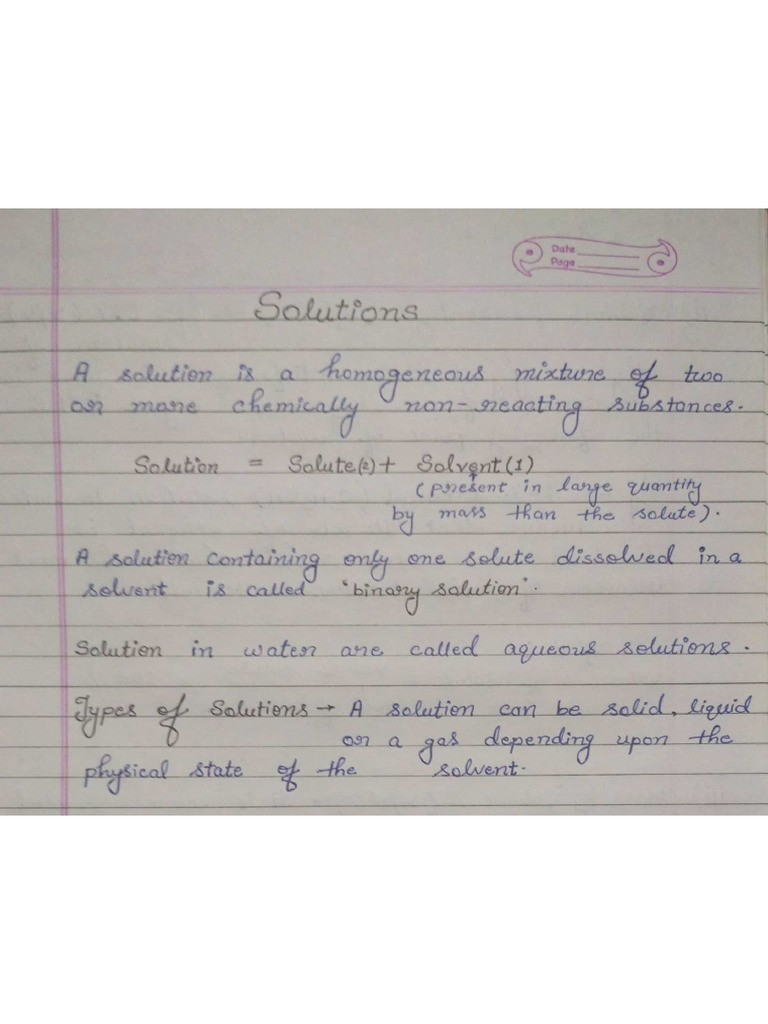 Date
Page
Solutions
A solution is a homogeneous mixture of two
or more chemically non-reacting substances.
Solution = Solute(2) + Solvent(1)
(present in large quantity
by mass than the solute).
A solution containing only one solute dissolved in a
solvent is called 'binary solution'.
Solution in water are called aqueous solutions.
Types of Solutions → A solution can be solid, liquid
or a gas depending upon the
physical state of the solvent.